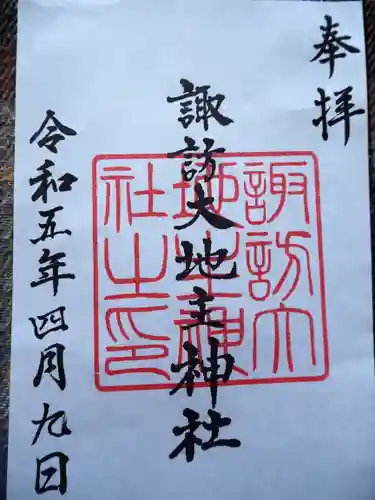 奉拝
諏訪大地主神社
諏訪大地主神社之印
令和五年四月九日